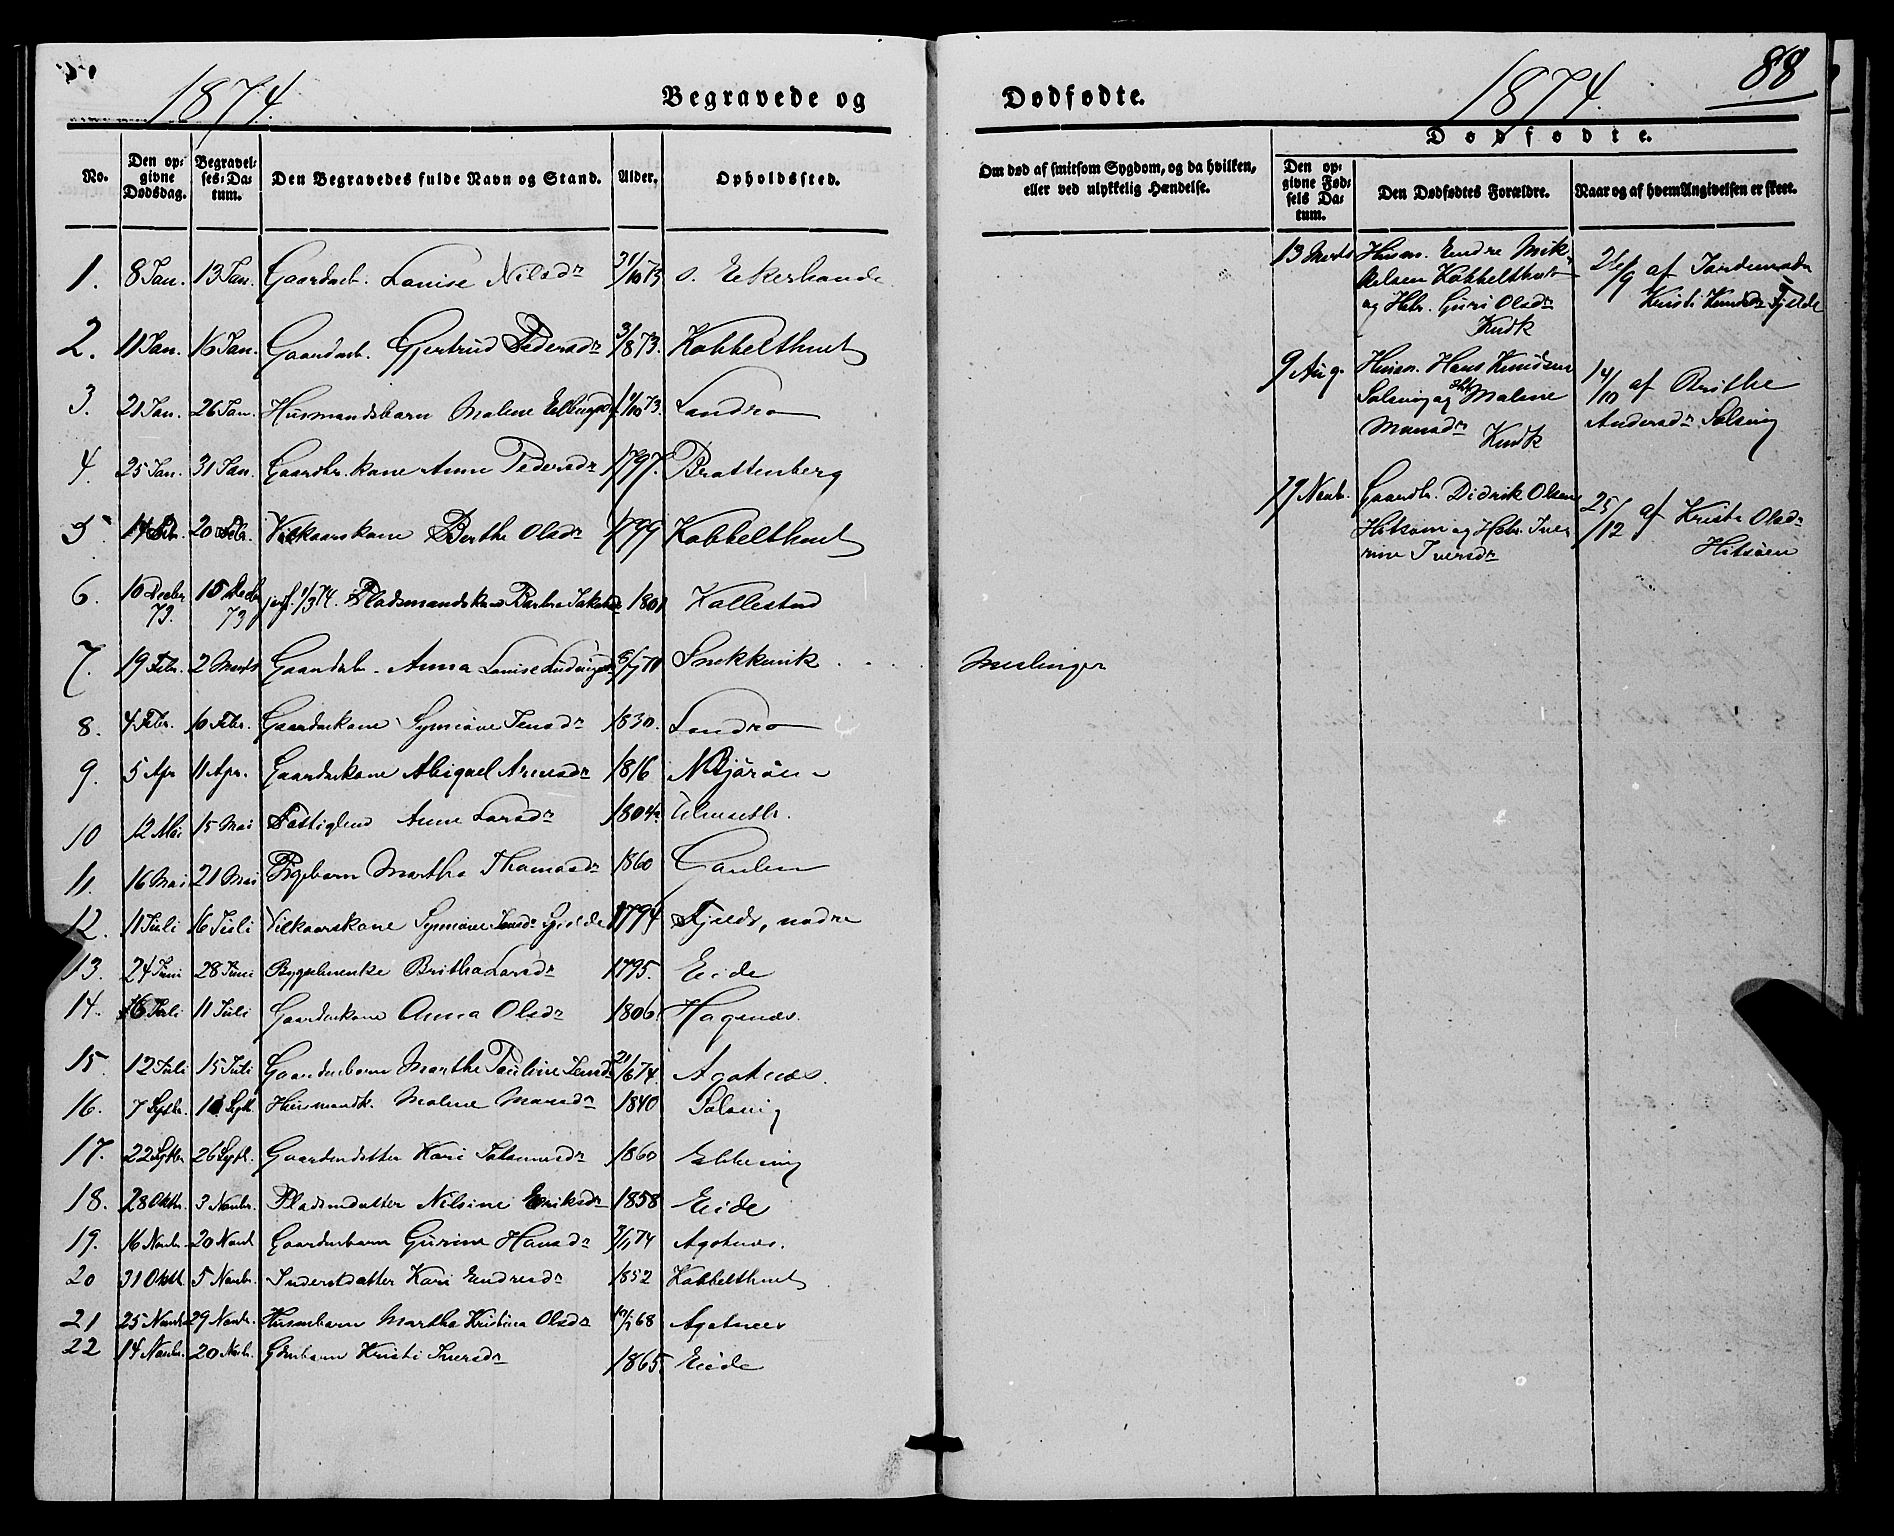 1874.
Begravede og
No.
Den opgivne Dødsdag.
Begravelses-Datum.
Den Begravedes fulde Navn og Stand.
Alder.
Opholdssted.
1. 8 Jan. 13 Jan. Gaardmb. Louise Nilsdr 31/10 73 o. Ekerhovde
2. 11 Jan. 16 Jan. Gaardmb. Gjertrud Pedersdr 3/8 73. Kobbelthvet
3. 21 Jan. 26 Jan. Husmandsbarn Malene 1/10 73. Landro
4. 25 Jan. 31 Jan. Gaardbr. kone Anne Pedersdr 1797. Brattenberg
5 14 Febr. 20 Febr. Vilkaarskone Berthe Olsdr 1799 Kobbelthvet
6. 10 Decbr 73. 15 Decbr 73 jrdf. 1/3 74. Pladsmandskone Barbro 1801 Kallestad
7. 19 Febr. 2 Marts Gaardmb. Anna Louise 70 Snekkevik
8. 4 Febr. 10 Febr. Gaardmkone Synnøve Jensdr 1830. Landro
9. 5 Apr 11 Apr. Gaardmkone Abigael Arnesdr 1816 N Bjørøen
10 12 Mai 15 Mai Fattiglem Anne Larsdr 1804
11. 16 Mai 21 Mai Pigebarn Martha Thomasdr 1860
12. 11 Juli 16 Juli Vilkaarskone Synnøve Jensdr Fjelde 1794 Fjelde, nedre
13. 24 Juni 28 Juni Bygselenke Britha Larsdr 1795. Eide
14. 6 Juli 11 Juli Gaardmkone Anna Olsdr 1806 Hagenæs.
15. 12 Juli 15 Juli Gaardmbarn Marthe Pauline Jensdr 21/6 74. Agotnæs.
16. 7 Septbr. 10 Sept. Husmandk. Malene Monsdr 1840 Solsvig
17. 22 Septbr 26 Septb. Gaardmdatter Kari Johannesdr 1860 Ebbesvig
18. 28 Oktbr. 3 Novbr. Pladsmdatter Nilsine Eriksdr 1858 Eide
19. 16 Novbr. 20 Novb. Gaardmbarn Gurine Hansdr 3/11 74 Agotnæs.
20 31 Oktb. 5 Novbr. Inderstdatter Kari Endresdr 1852 Kobbelthvet
21 25 Novbr 29 Novbr. Husmbarn Martha Kristina Olsdr 68 Agotnæs
22 14 Novbr. 20 Novbr. Gdmbarn Kristi Iversdr 1865. Eide
Dødfødte.
1874.
88
Om død af smitsom Sygdom, og da hvilken,
eller ved ulykkelig Hændelse.
Dødfødte.
Den opgivne Fødsels Datum.
Den Dødfødtes Forældre.
Naar og af hvem Angivelsen er skeet.
Meslinger
13 Marts Husm. Endre Mik-
kelsen Kobbelthvet
og Hstr. Guri Olsdr
Kndk
af Jordemoder
Kristi Knudsdr Fjelde
9 Aug. Husm. Hans Knudsen
Solsvig og Hst Malene
Monsdr Kndk
14/10 af Brithe
Andersdr Solsvig
17 Novbr. Gaardbr. Didrik Olsen
Hitsøen og Hstr. Iver
rine Iversdr
25/12 af Kristi Olsdr
Hitsøen